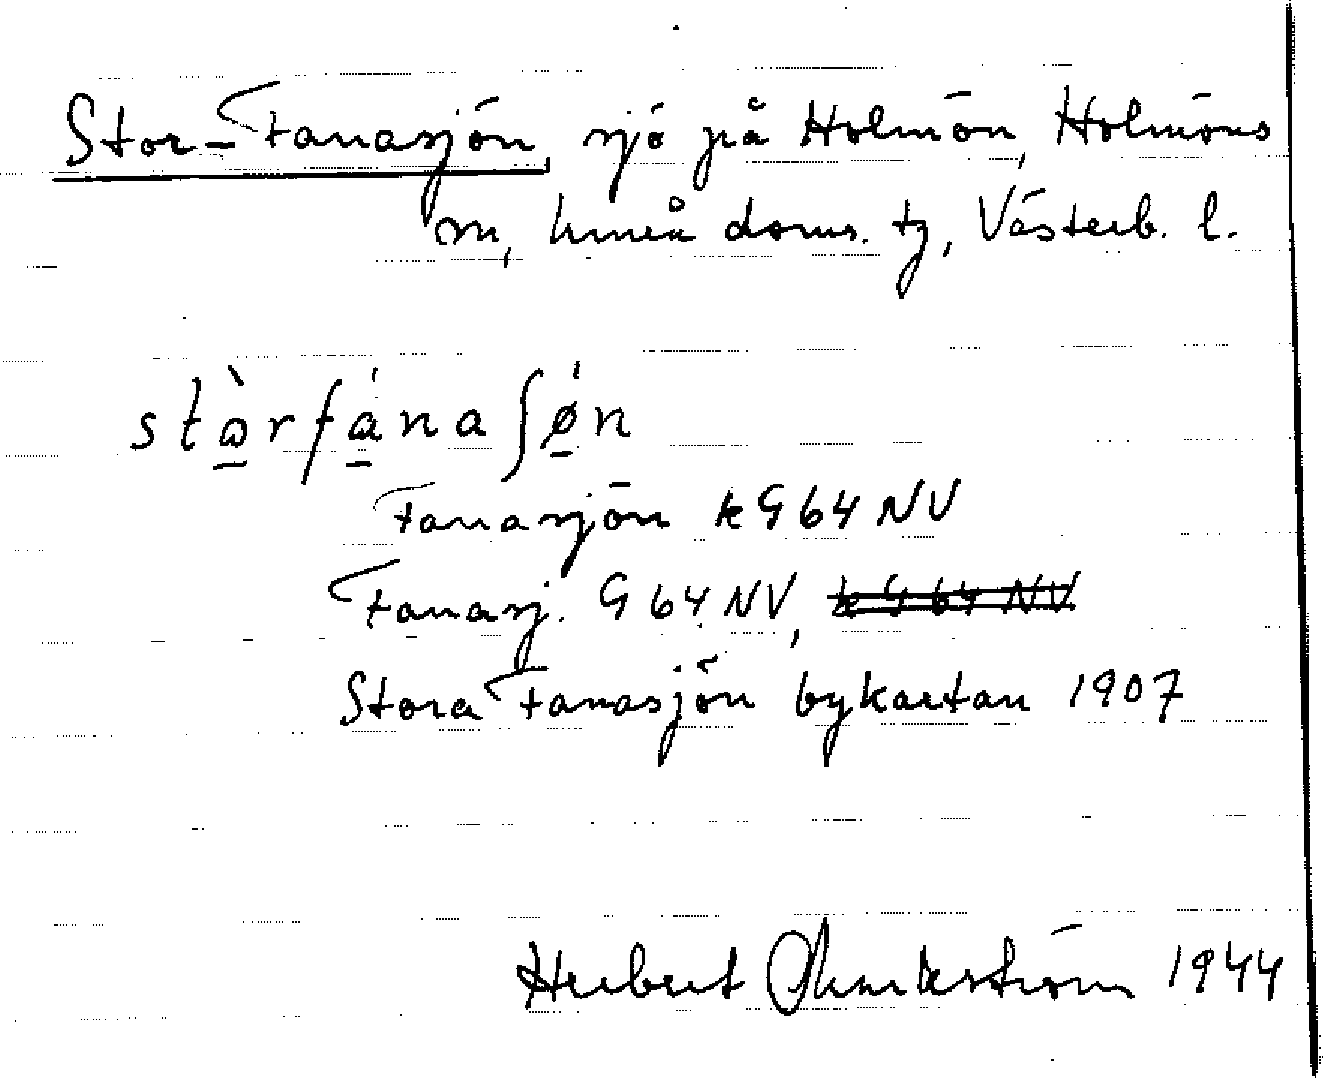 Stor-Fanasjön, sjö på Holmön, Holmöns
m, Umeå doms. tg, Västerb. l.
stὰ̱rfá̱naʃǿ̱n
Fanasjön kG64NV
Fanasj. G64NV, kG64NV
Stora Fanasjön bykartan 1907
Herbert 1944